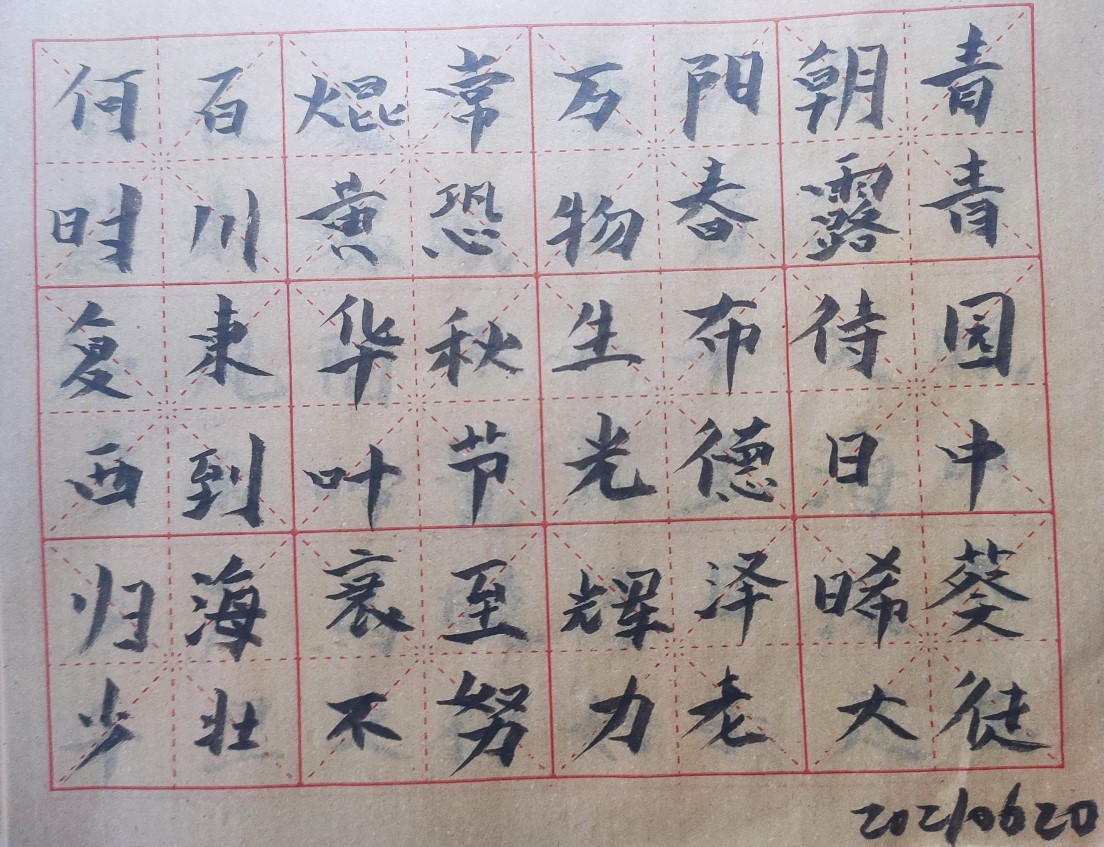 青青园中葵
朝露侍日晞
阳春布德泽
万物生光辉
常恐秋节至
焜黄华叶衰
百川東到海
何时复西归
少壮不努力老大徒
20210620